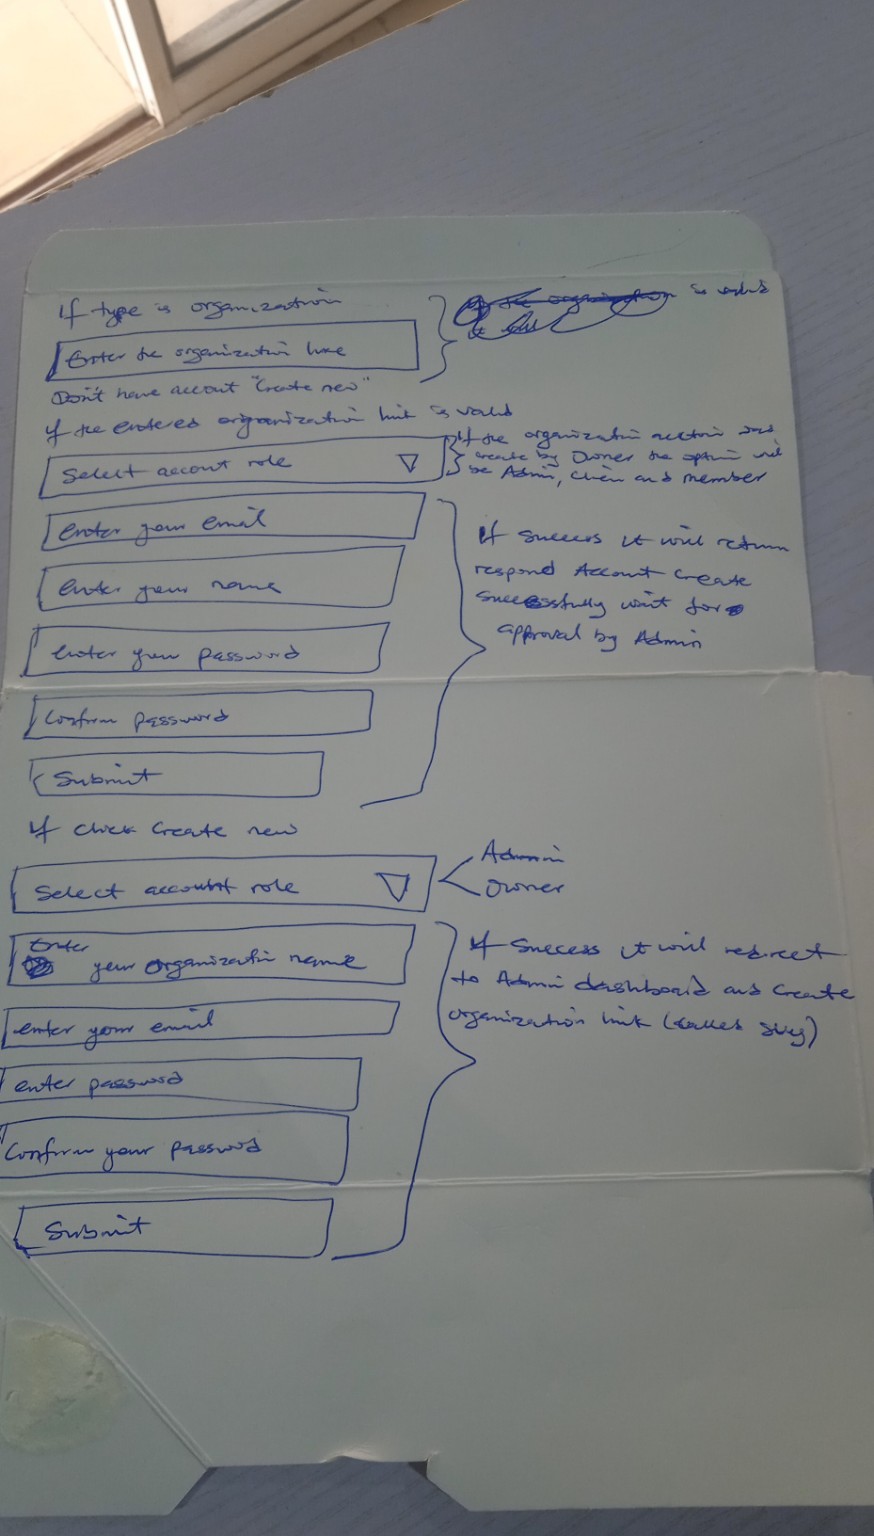 If type is organization
Enter the organization link
Don't have account "Create new"
If the entered organization link is valid
Select account role
If the organization account was
create by Owner the option will
be Admin, Client and member
enter your email
enter your name
enter your password
Confirm password
Submit
If success it will return
respond Account create
successfully wait for
approval by Admin
If click Create new
Select account role
Admin
Owner
Enter
your organization name
enter your email
enter password
Confirm your password
Submit
If success it will redirect
to Admin dashboard and create
organization link (called slug)